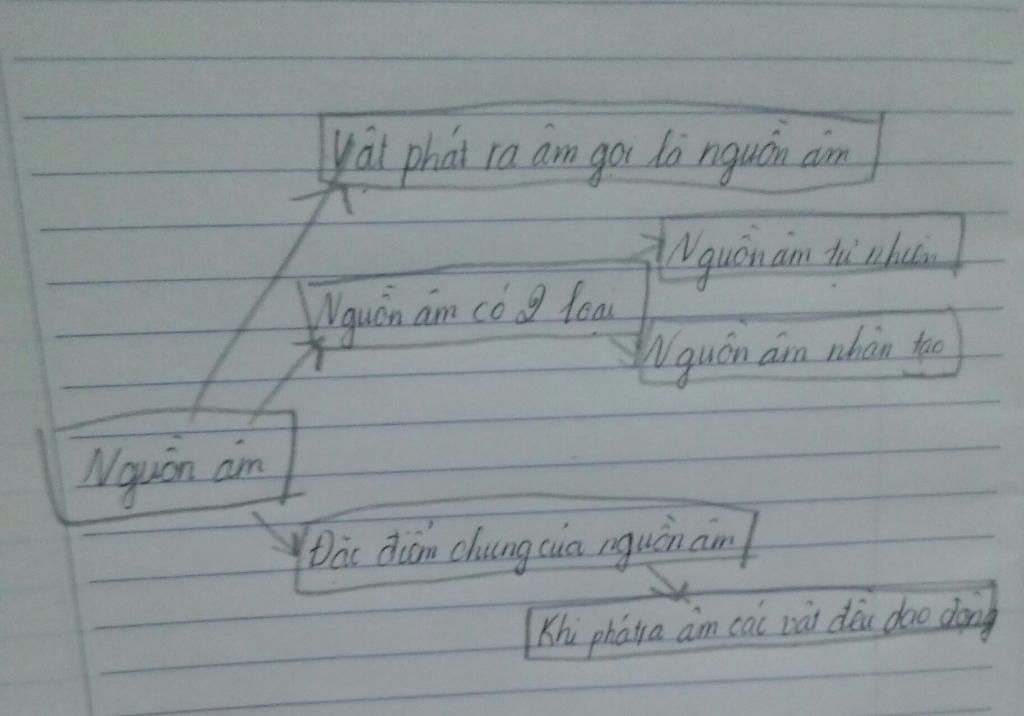 Vật phát ra âm gọi là nguồn âm
Nguồn âm tự nhiên
Nguồn âm có 2 loại
Nguồn âm nhân tạo
Nguồn âm
Đặc điểm chung của nguồn âm
Khi phát ra âm các vật đều dao động